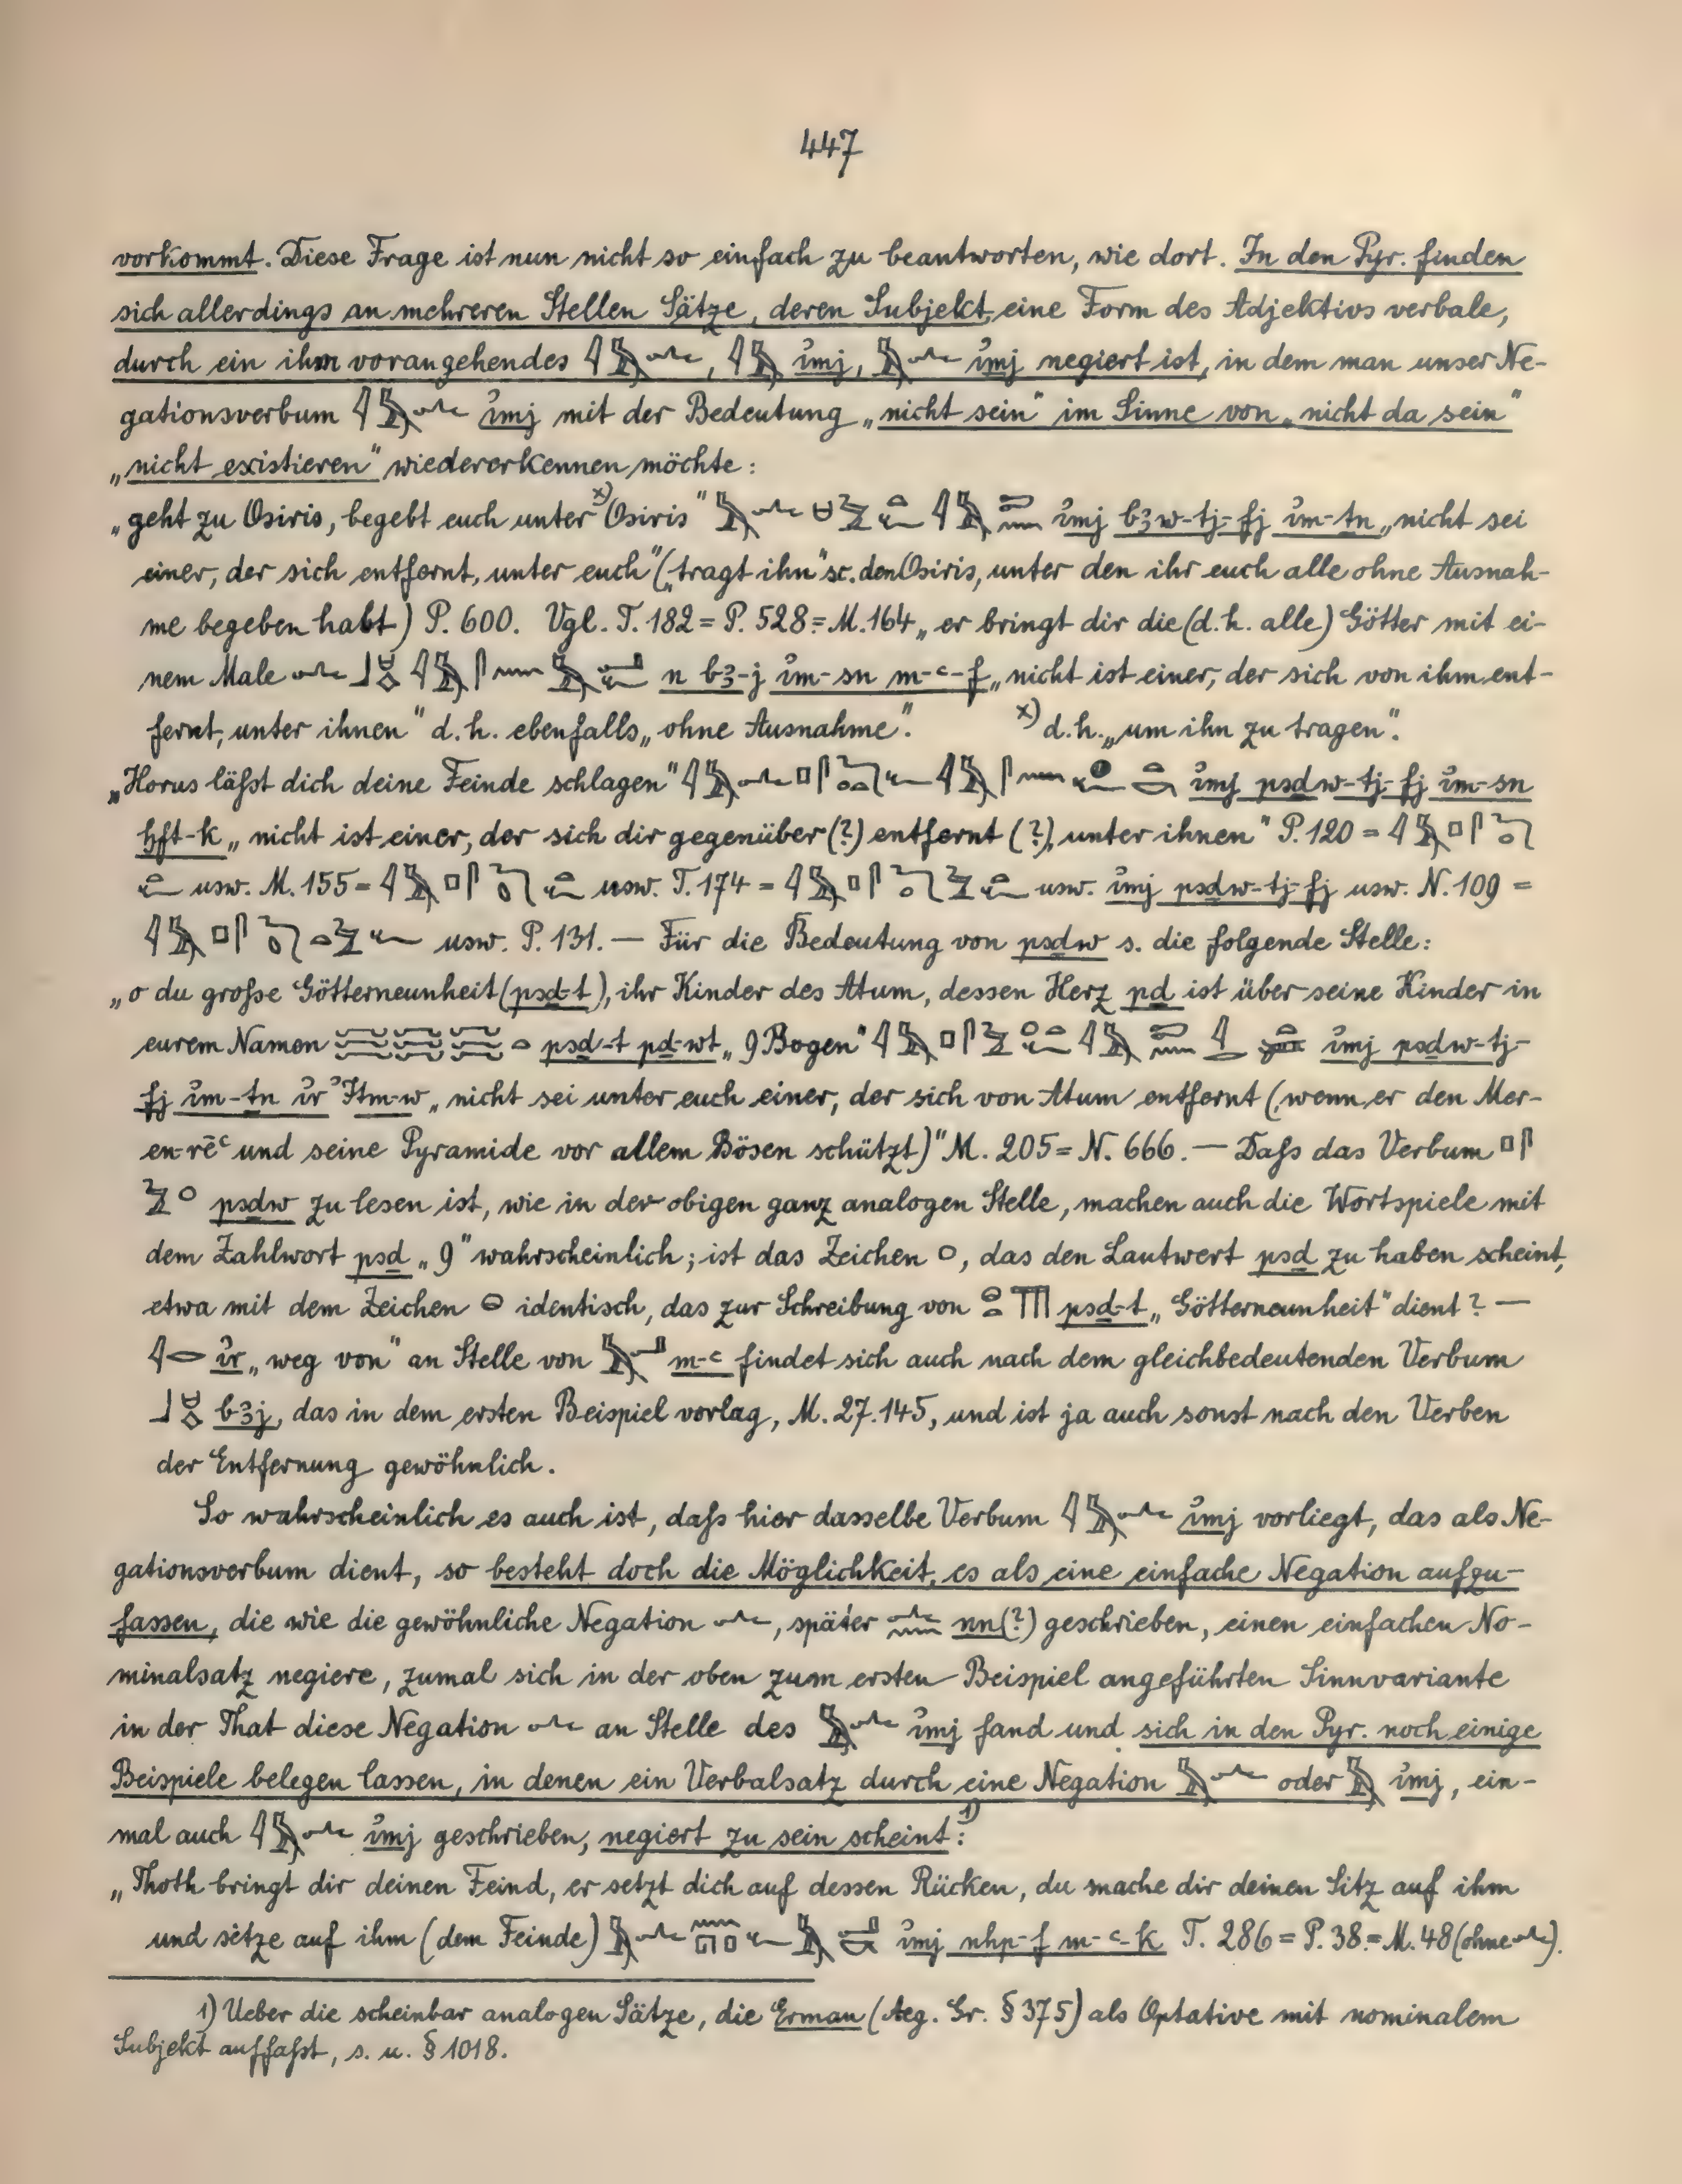 447
vorkommt. Diese Frage ist nun nicht so einfach zu beantworten, wie dort. In den Pyr. finden
sich allerdings an mehreren Stellen Sätze, deren Subjekt, eine Form des Adjektivs verbale,
durch ein ihm vorangehendes , imj, imj negiert ist, in dem man unser Ne-
gationsverbum imj mit der Bedeutung „nicht sein" im Sinne von „nicht da sein"
„nicht existieren" wiedererkennen möchte:
„geht zu Osiris, begebt euch unter x) Osiris" imj bꜣw-tj-fj im-tn „nicht sei
einer, der sich entfernt, unter euch" („tragt ihn" sc. den Osiris, unter den ihr euch alle ohne Ausnah-
me begeben habt) P. 600. Vgl. T. 182 = P. 528 = M. 164 „er bringt dir die (d.h. alle) Götter mit ei-
nem Male n bꜣ-j im-sn m-ꜥ-f „nicht ist einer, der sich von ihm ent-
fernt, unter ihnen" d.h. ebenfalls „ohne Ausnahme". x) d.h. „um ihn zu tragen".
„Horus läßt dich deine Feinde schlagen" imj psḏw-tj-fj im-sn
ḫft-k „nicht ist einer, der sich dir gegenüber (?) entfernt (?), unter ihnen" P. 120 =
usw. M. 155 = usw. T. 174 = usw. imj psḏw-tj-fj usw. N. 109 =
usw. P. 131. — Für die Bedeutung von psḏw s. die folgende Stelle:
„o du große Götterneunheit (psḏ-t), ihr Kinder des Atum, dessen Herz pḏ ist über seine Kinder in
eurem Namen psḏ-t pḏ-wt „9 Bogen" imj psḏw-tj-
fj im-ṯn ir ꜣItm-w „nicht sei unter euch einer, der sich von Atum entfernt (wenn er den Mer-
en-rēꜥ und seine Pyramide vor allem Bösen schützt)" M. 205 = N. 666. — Daß das Verbum
psḏw zu lesen ist, wie in der obigen ganz analogen Stelle, machen auch die Wortspiele mit
dem Zahlwort psḏ „9" wahrscheinlich; ist das Zeichen , das den Lautwert psḏ zu haben scheint,
etwa mit dem Zeichen identisch, das zur Schreibung von psḏ-t „Götterneunheit" dient? —
ir „weg von" an Stelle von m-ꜥ findet sich auch nach dem gleichbedeutenden Verbum
bꜣj, das in dem ersten Beispiel vorlag, M. 27. 145, und ist ja auch sonst nach den Verben
der Entfernung gewöhnlich.
So wahrscheinlich es auch ist, daß hier dasselbe Verbum imj vorliegt, das als Ne-
gationsverbum dient, so besteht doch die Möglichkeit, es als eine einfache Negation aufzu-
fassen, die wie die gewöhnliche Negation , später nn(?) geschrieben, einen einfachen No-
minalsatz negiere, zumal sich in der oben zum ersten Beispiel angeführten Sinnvariante
in der That diese Negation an Stelle des imj fand und sich in den Pyr. noch einige
Beispiele belegen lassen, in denen ein Verbalsatz durch eine Negation oder imj, ein-
mal auch imj geschrieben, negiert zu sein scheint: 1)
„Thoth bringt dir deinen Feind, er setzt dich auf dessen Rücken, du mache dir deinen Sitz auf ihm
und sitze auf ihm (dem Feinde) imj nhp-f m-ꜥ-k T. 286 = P. 38 = M. 48 (ohne ).
1) Ueber die scheinbar analogen Sätze, die Erman (Aeg. Gr. § 375) als Optative mit nominalem
Subjekt auffaßt, s. u. § 1018.